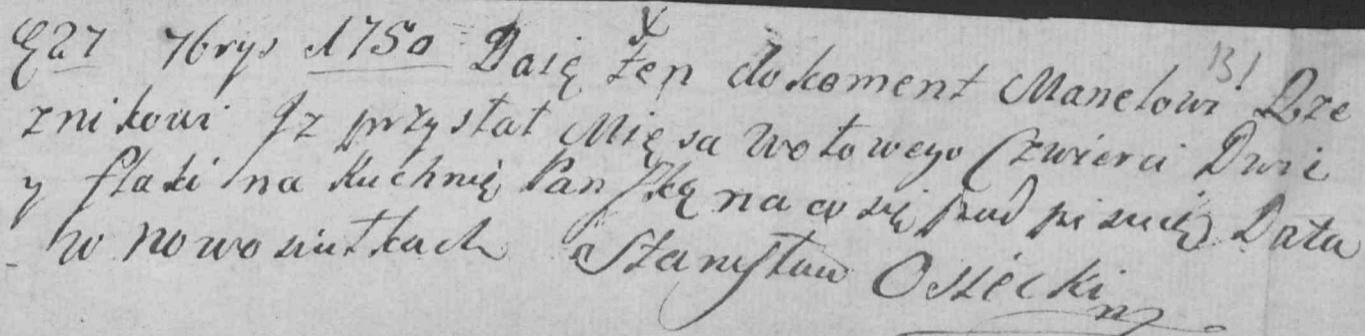 E 27 7brys 1750 Daię Ten dokoment Manelowi 131 Rze
znikowi Iz przystał Mięsa Wołowego Czwierci Dwie
y flaki na Kuchnię Panską na co się pod pisuię Data
w Nowosiułkach Stanisław Osiecki